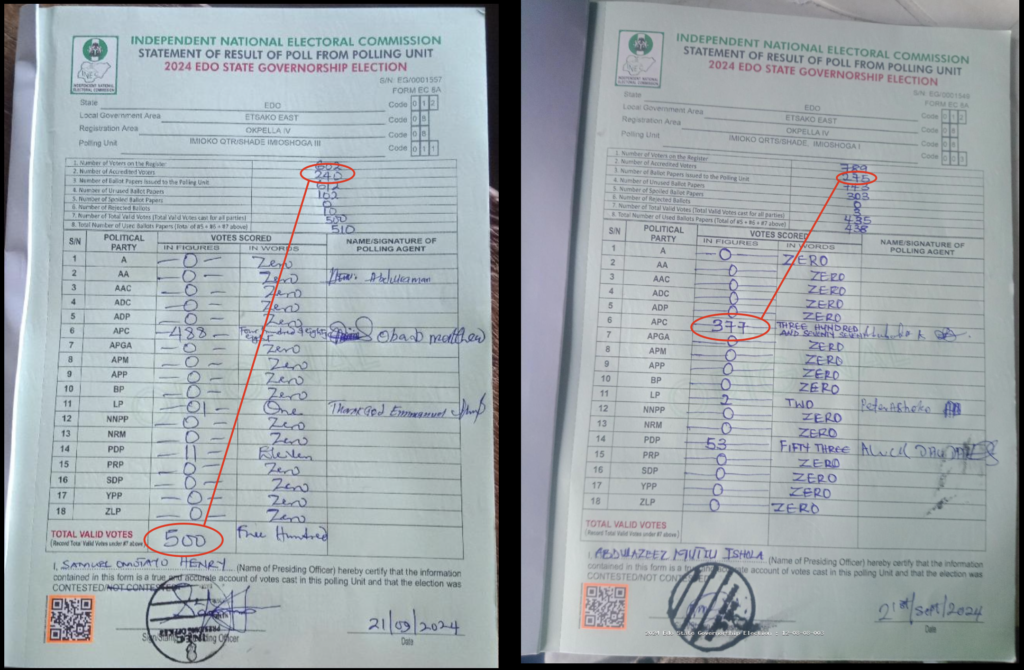 INDEPENDENT NATIONAL ELECTORAL COMMISSION
STATEMENT OF RESULT OF POLL FROM POLLING UNIT
2024 EDO STATE GOVERNORSHIP ELECTION
S/N: EG/0001557
FORM EC 8A
State EDO Code 0 1 2
Local Government Area ETSAKO EAST Code 0 8
Registration Area OKPELLA IV Code 0 8
Polling Unit IMIOKO QTR/SHADE IMIOSHOGA III Code 0 1 1
1. Number of Voters on the Register
2. Number of Accredited Voters 240
3. Number of Ballot Papers Issued to the Polling Unit 612
4. Number of Unused Ballot Papers 102
5. Number of Spoiled Ballot Papers 0
6. Number of Rejected Ballots 10
7. Number of Total Valid Votes (Total Valid Votes cast for all parties) 500
8. Total Number of Used Ballots Papers (Total of #5 + #6 + #7 above) 510
S/N POLITICAL PARTY VOTES SCORED NAME/SIGNATURE OF POLLING AGENT
IN FIGURES IN WORDS
1 A 0 Zero
2 AA 0 Zero
3 AAC 0 Zero
4 ADC 0 Zero
5 ADP 0 Zero
6 APC 488 Four hundred & eighty eight
7 APGA 0 Zero
8 APM 0 Zero
9 APP 0 Zero
10 BP 0 Zero
11 LP 01 One ThankGod Emmanuel
12 NNPP 0 Zero
13 NRM 0 Zero
14 PDP 11 Eleven
15 PRP 0 Zero
16 SDP 0 Zero
17 YPP 0 Zero
18 ZLP 0 Zero
TOTAL VALID VOTES 500 Five Hundred
(Record Total Valid Votes under #7 above)
I, SAMUEL OMOTAYO HENRY (Name of Presiding Officer) hereby certify that the information
contained in this form is a true and accurate account of votes cast in this polling Unit and that the election was
CONTESTED/NOT CONTESTED
21/09/2024
Date
INDEPENDENT NATIONAL ELECTORAL COMMISSION
STATEMENT OF RESULT OF POLL FROM POLLING UNIT
2024 EDO STATE GOVERNORSHIP ELECTION
S/N: EG/0001549
FORM EC 8A
State EDO Code 0 1 2
Local Government Area ETSAKO EAST Code 0 8
Registration Area OKPELLA IV Code 0 8
Polling Unit IMIOKO QTR/SHADE, IMIOSHOGA I Code
1. Number of Voters on the Register 789
2. Number of Accredited Voters
3. Number of Ballot Papers Issued to the Polling Unit
4. Number of Unused Ballot Papers 303
5. Number of Spoiled Ballot Papers 0
6. Number of Rejected Ballots
7. Number of Total Valid Votes (Total Valid Votes cast for all parties) 435
8. Total Number of Used Ballots Papers (Total of #5 + #6 + #7 above) 438
S/N POLITICAL PARTY VOTES SCORED NAME/SIGNATURE OF POLLING AGENT
IN FIGURES IN WORDS
1 A 0 ZERO
2 AA 0 ZERO
3 AAC 0 ZERO
4 ADC 0 ZERO
5 ADP 0 ZERO
6 APC 377 THREE HUNDRED AND SEVENTY SEVEN
7 APGA 0 ZERO
8 APM 0 ZERO
9 APP 0 ZERO
10 BP 0 ZERO
11 LP 2 TWO
12 NNPP 0 ZERO
13 NRM 0 ZERO
14 PDP 53 FIFTY THREE
15 PRP 0 ZERO
16 SDP 0 ZERO
17 YPP 0 ZERO
18 ZLP 0 ZERO
TOTAL VALID VOTES
(Record Total Valid Votes under #7 above)
I, ABDULAZEEZ MUTIU ISHOLA (Name of Presiding Officer) hereby certify that the information
contained in this form is a true and accurate account of votes cast in this polling Unit and that the election was
CONTESTED/NOT CONTESTED
21st/Sept/2024
Date